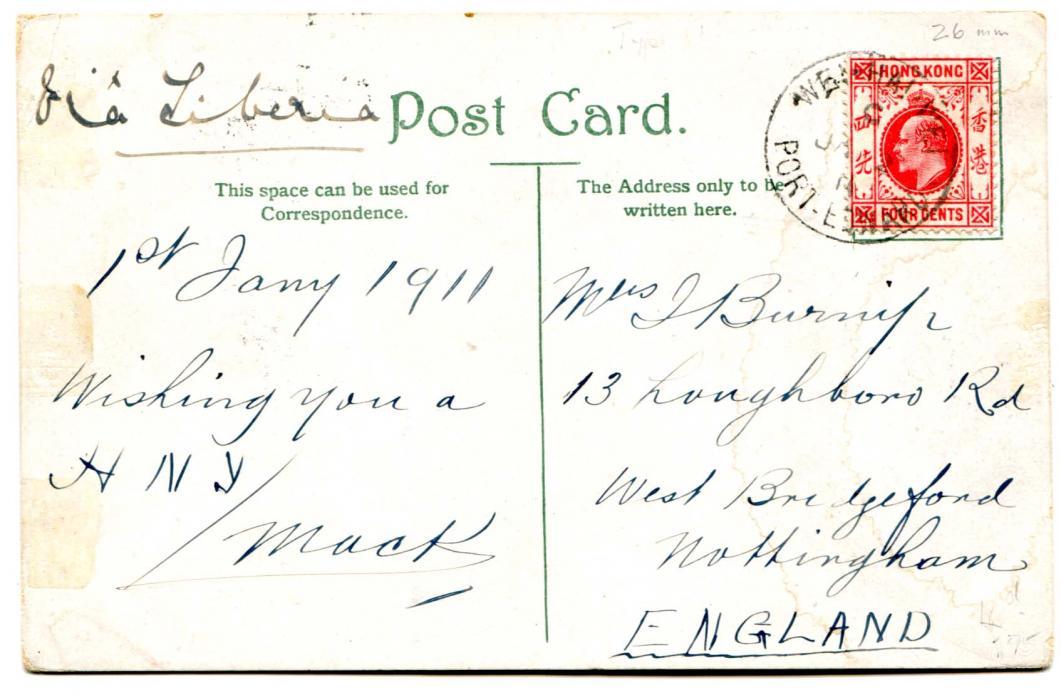 26 mm
Type
Viâ Liberia
Post Card.
HONG KONG
香港
四先
FOUR CENTS
PORT-EDWARD
This space can be used for
Correspondence.
The Address only to be
written here.
1st Jany 1911
Wishing you a
H N Y
Mack
Mrs J Burnip
13 Loughboro Rd
West Bridgeford
Nottingham
ENGLAND